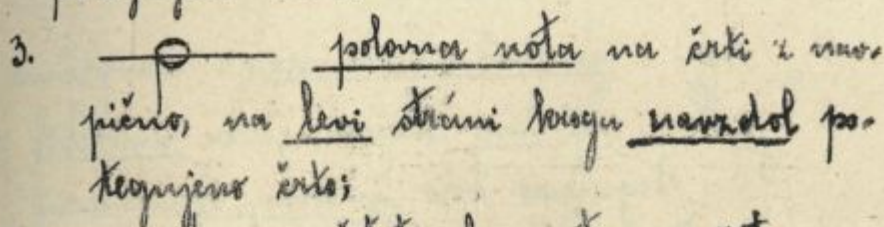 3. polovna nota na črti z nav-
pično, na levi strani kroga navzdol po-
tegnjeno črto;